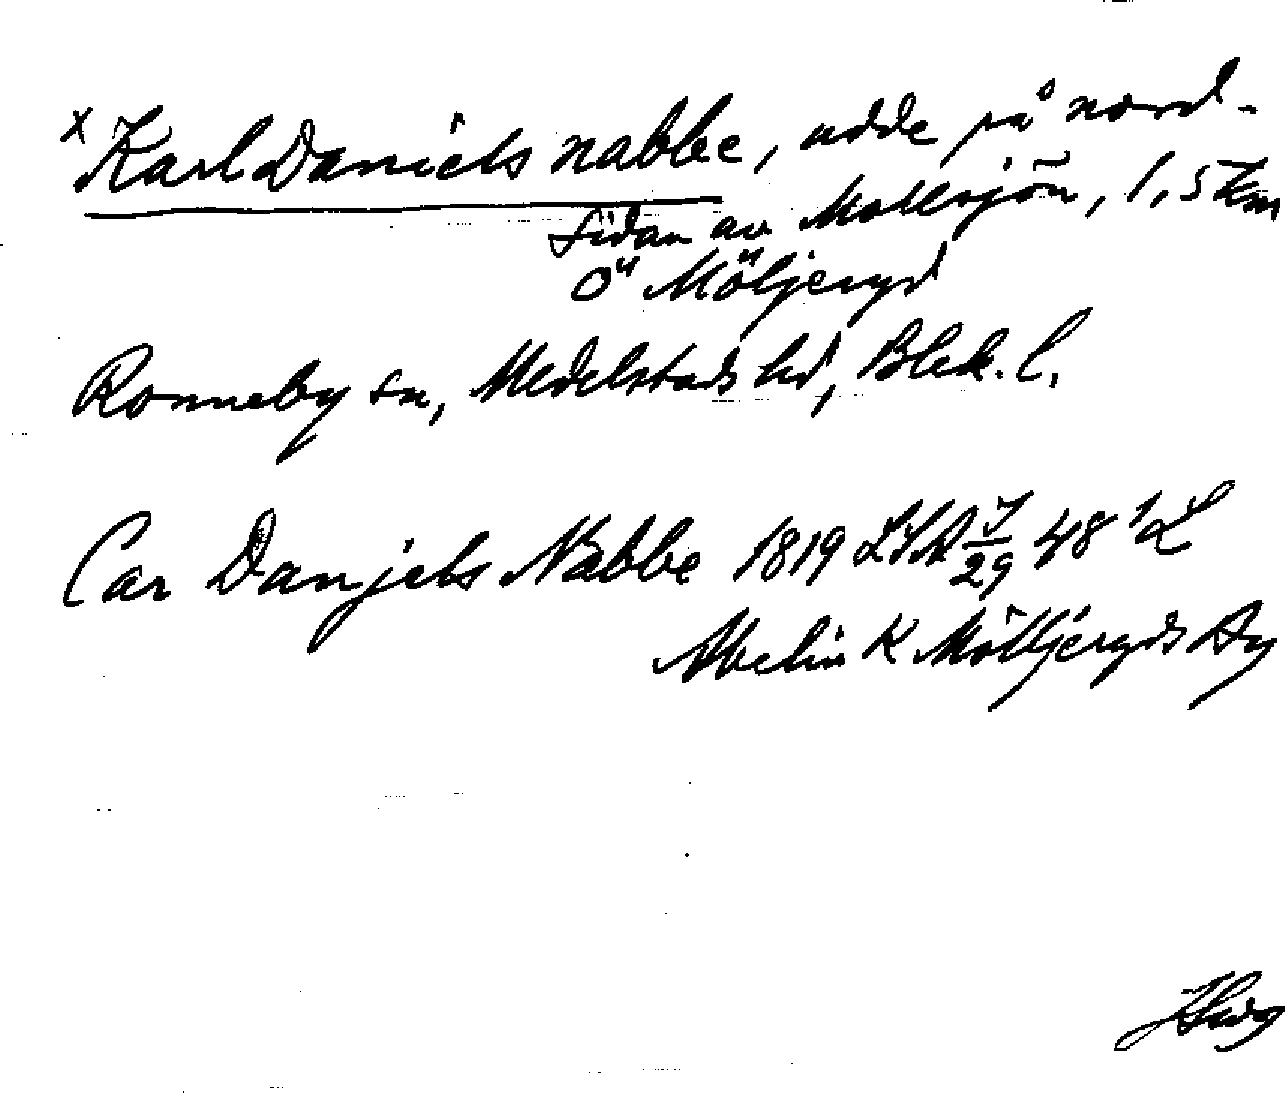 x Karl Daniels nabbe, udde på nord-
sidan av Mollsjön, 1,5 km
Ö" Möljeryd
Ronneby sn, Medelstads hd, Blek. l.
Car Danjels Nabbe 1819 LSA 29 48
K Mölljeryds Äg